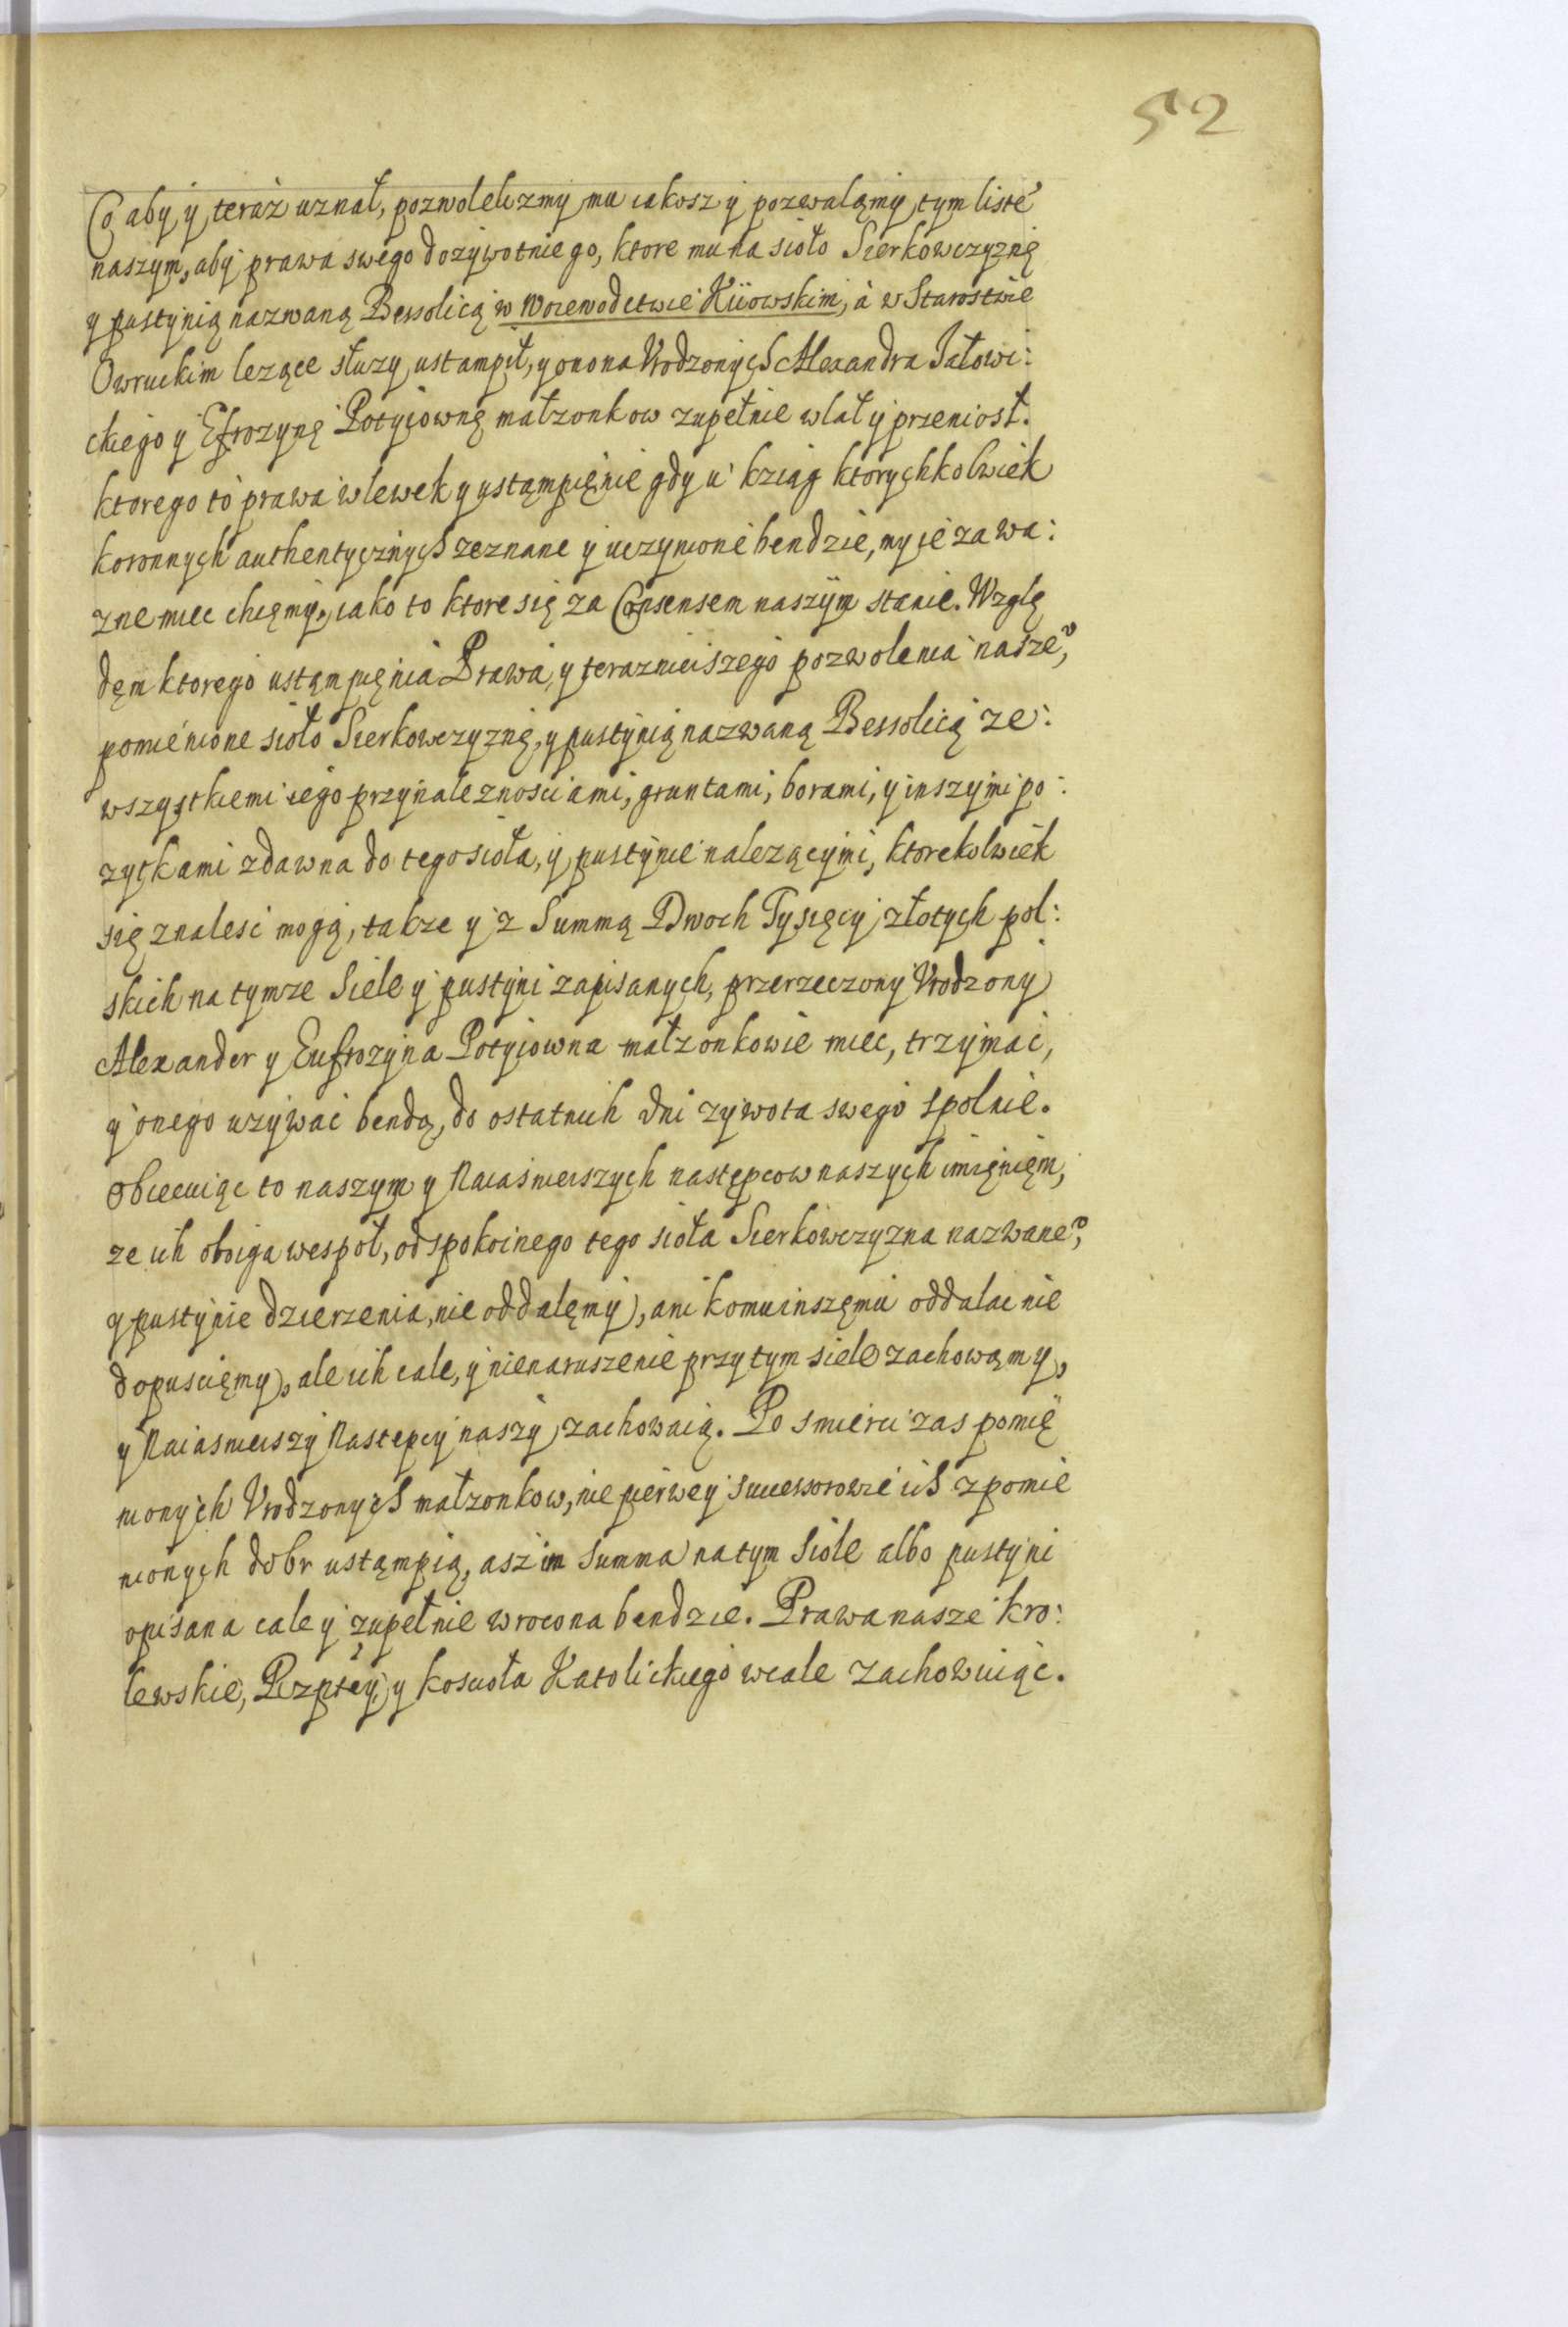 52
Co aby y teraz uznał, pozwolelizmy mu iakosz y pozwaląmy tym liste͂
naszym, aby prawa swego dozywotniego, ktore mu na sioło Sierkowczyznę
y pustynią nazwaną Bessolicą w Woiewodctwie Kiiowskim, à w Starostwie
Owruckim lezące słuzy ustąmpił, y ono na Vrodzonych Alexandra Jałowi:
ckiego y Efrozynę Potyiownę małzonkow zupełnie wlał y przeniosł.
ktorego to prawa wlewek y ustąmpięnie gdy u ksiąg ktorychkolwiek
koronnych authentycznych zeznane y uczynione bendzie, my ie za wa:
zne miec chcęmy, iako to ktore się za Consensem naszym stanie. Wzglę
dęm ktorego ustąmpięnia Prawa, y terazniejszego pozwolenia nasze͂,
pomienione sioło Sierkowczyznę, y pustynią nazwaną Bessolicą ze:
wszystkiemi iego przynaleznosciami, gruntami, borami, y inszymi po:
zytkami zdawna do tego sioła, y pustynie nalezącymi, ktorekolwiek
się znalesc mogą, takze y z Summą Dwoch Tysięcy złotych pol:
skich na tymze Siele y pustyni zapisanych, przerzeczony Vrodzony
Alexander y Eufrozyna Potyiowna małzonkowie miec, trzymac,
y onego uzywac bendą, do ostatnich dni zywota swego spolnie.
Obiecuiąc to naszym y Naiasnieiszych następcow naszych imięnięm,
ze ich oboiga wespoł, od spokoinego tego sioła Sierkowczyzna nazwane͂,
y pustynie dzierzenia, nie oddalęmy, ani komu inszęmu oddalac nie
dopuscięmy, ale ich cale, y nienaruszenie przy tym siele zachowąmy,
y Naiasnieiszy Nastepcy naszy zachowaią. Po smierci zas pomię
nionych Vrodzonych małzonkow, nie pierwey successorowie ich z pomie
nionych dobr ustąmpią, asz im summa na tym Siole albo pustyni
opisana cale y zupełnie wrocona bendzie. Prawa nasze kro:
lewskie, Rzptey, y koscioła Katolickiego wcale zachowuiąc.